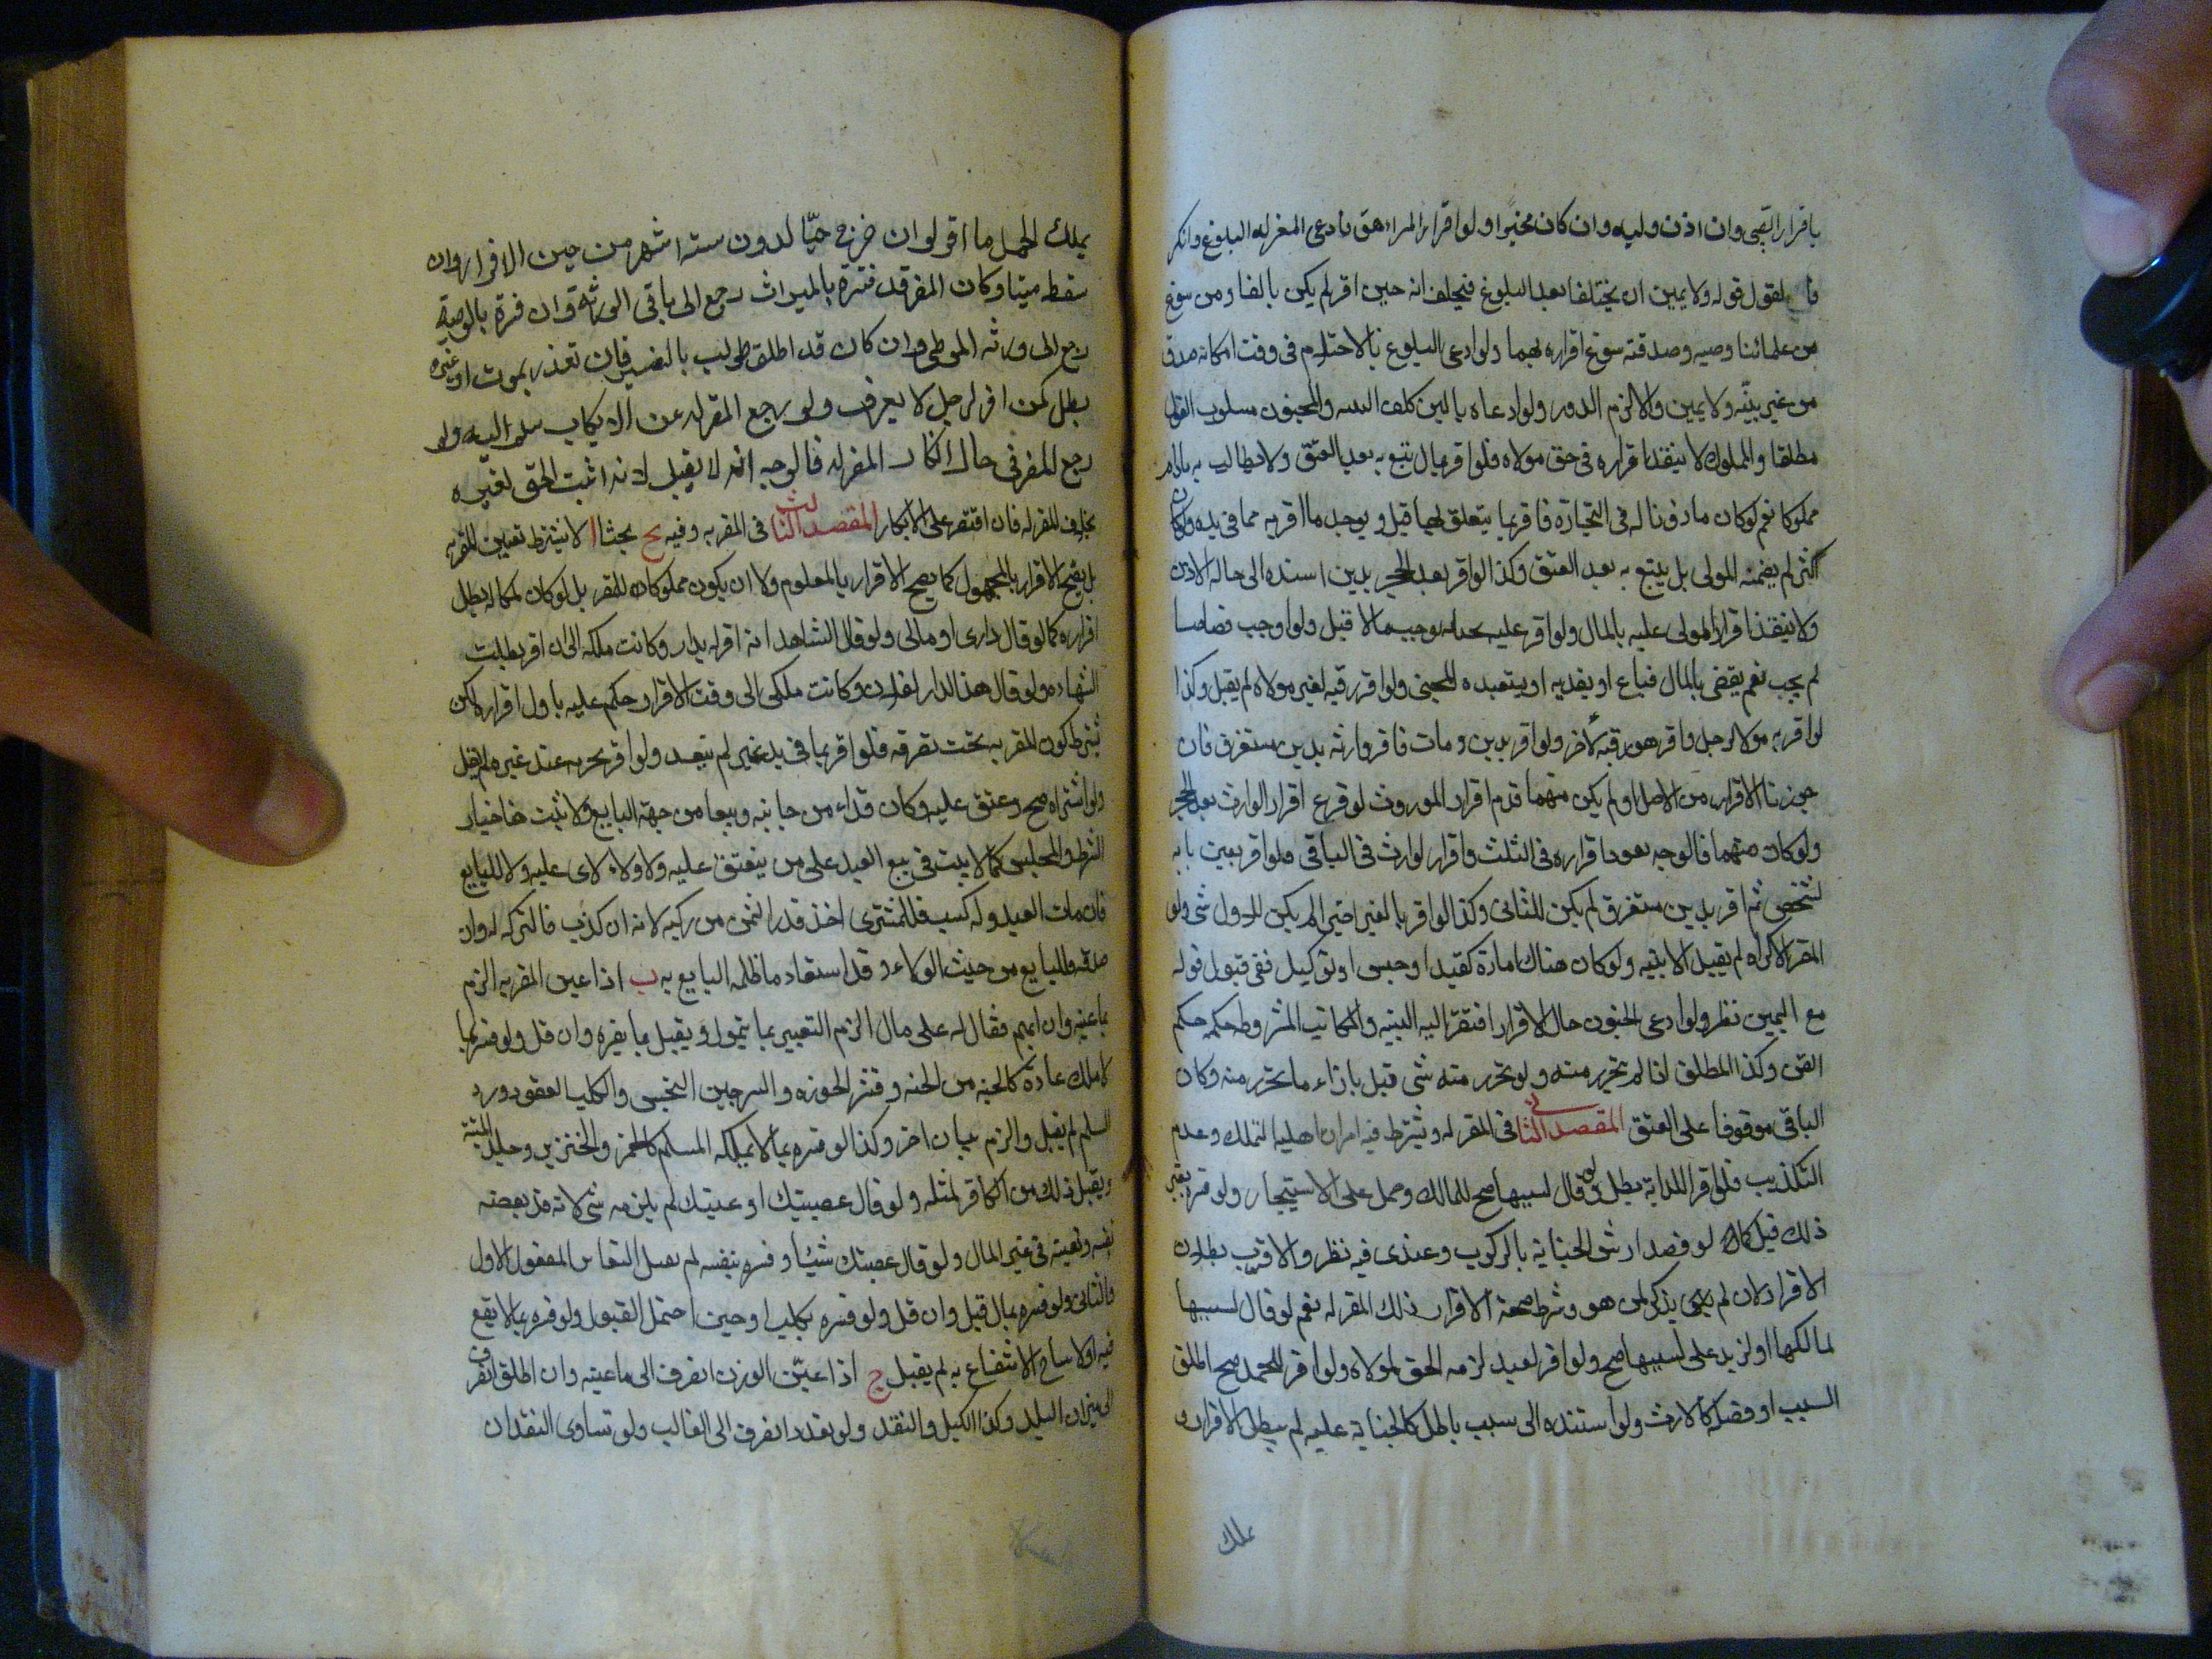 باقرار الصبى وان اذن وليه وان كان مخيرا ولو اقر المراهق فادعى المقر له البلوغ وانكر
فالقول قوله ولا يمين ان يختلفا بعد البلوغ فيحلف انه حين اقر لم يكن بالغا ومن سوغ
من علمائنا وصيته وصدقته سوغ اقراره بهما ولو ادعى البلوغ بالاحتلام فى وقت امكانه صدق
من غير بينة ولا يمين والا لزم الدور ولو ادعاه بالسن كلف البينه والمجنون مسلوب القول
مطلقا والمملوك لا ينفذ اقراره فى حق مولاه فلو اقر بمال تبع به بعد العتق ولا يطالب به مادام
مملوكا نعم لو كان ماذونا له فى التجارة فاقر بما يتعلق بها قبل ويوخذ ما اقر به مما فى يده ولو كان
اكثر لم يضمنه المولى بل يتبع به بعد العتق وكذا لو اقر بعد الحجر بدين اسنده الى حاله الاذن
ولا ينفذ اقرار المولى عليه بالمال ولو اقر عليه بجناية توجب مالا قبل ولو اوجب قصاصا
لم يجب نعم يقضى بالمال فيباع او يفديه او يستعبده المجنى ولو اقر رقيه لغير مولاه لم يقبل وكذا
لو اقر به مولاه لرجل واقر هو برقيه لآخر ولو اقر بدين ومات فاقر وارثه بدين مستغرق فان
جوزنا الاقرار من الاصل او لم يكن متهما قدم اقرار الموروث لوقوع اقرار الوارث بعد الحجر
ولو كان متهما فالوجه نفوذ اقراره فى الثلث واقرار لوارث فى الباقى فلو اقر بعين مابه
لشخص ثم اقر بدين مستغرق لم يكن للثانى وكذا لو اقر بالعين اخيرا لم يكن للاول شى ولو
المقر الاكراه لم يقبل الا ببينه ولو كان هناك امارة كقيد او حبس او توكيل ففى قبول قوله
مع اليمين نظر ولو ادعى الجنون حال الاقرار افتقر اليه البينه والمكاتب المشروط حكمه حكم
القن وكذا المطلق اذا لم يتحرر منه ولو تحرر منه شى قبل بازاء ما تحرر منه وكان
الباقى موقوفا على العتق المقصد الثانى فى المقر له ويشترط فيه امران اهلية التملك وعدم
التكذيب فلو اقر للدابة بطل ولو قال لسببها صح للمالك وحمل على الاستيجار ولو فسره بغير
ذلك قبل كما لو قصد ارش الجناية بالركوب وعندى فيه نظر والاقرب بطلان
الاقرار لان لم يذكر لمن هو وشرط صحة الاقرار ذلك المقر له نعم لو قال لسببها
لمالكها او لزيد على لسببها صح ولو اقر لعبد لزمه الحق لمولاه ولو اقر للحمل صح اطلق
السبب او فصل كالارث ولو استنده الى سبب باطل كالجناية عليه لم يبطل الاقرار و
يملك
يملك الحمل ما اقر لو ان خرج حيّا لدون سته اشهر من حين الاقرار وان
سقط ميتا وكان المقر قد فسره بالميراث رجع الى باقى الورثه وان فسره بالوصية
رجع الى ورثه الموصى وان كان قد اطلق طولب بالتفسير فان تعذر بموت او غيره
بطل كمن اقر لرجل لا يعرف ولو رجع المقر له عن الانكار سلم اليه ولو
رجع المقر فى حال انكار المقر له فالوجه انه لا يقبل لانه اثبت الحق لغيره
بخلاف المقر له فان اقتصر على الانكار المقصد الثالث فى المقر به وفيه يح بحثا ا لا يشترط تعيين المقر به
بل يصح الاقرار بالمجهول كما يصح الاقرار بالمعلوم ولا ان يكون مملوكا للمقر بل لو كان ملكا له بطل
اقراره كما لو قال دارى او مالى ولو قال الشاهد انه اقر له بدار وكانت ملكه الى ان اقر بطلت
الشهاده ولو قال هذا الدار لفلان وكانت ملكى الى وقت الاقرار حكم عليه باول اقراره لكن
يشترط كون المقر به تحت تصرفه فلو اقر بما فى يد غير لم ينفذ ولو اقر بحريه عبد غيره لم يقبل
ولو اشتراه صح وعتق عليه وكان فداء من جانبه وبيعا من جهة البايع ولا يثبت خيار
الشرط والمجلس كما لا يثبت فى بيع العبد على من ينعتق عليه ولا ولاء لاى عليه ولا للبايع
فان مات العبد وله كسب فللمشترى اخذ قدر الثمن من تركته لانه ان كذب فالتركه له وان
صدق فللبايع من حيث الولاء وقد استفاد ما ظلمه البايع به ب اذا عين المقر به الزم
بما عينه وان ابهم فقال له على مال الزم التعبير بما يتمول ويقبل ما يفسره وان قل ولو فسر بما
لا يملك عادة كالحبة من الحنطه وقشر الجوزه والسرجين النجس والكلب العقور ورد
السلم لم يقبل والزم ببيان اخر وكذا لو فسره بما لا يملكه المسلم كالخمر والخنزير وجلد الميتة
ويقبل ذلك من الكافر لمثله ولو قال غصبتك او غبنتك لم يلزمه شى لانه قد يغصبه
نفسه ويغبنه فى غير المال ولو قال غصبتك شيئا وفسره بنفسه لم يقبل المفعول الاول
فالثانى ولو فسره بمال قبل وان قل ولو فسره بكلب او خمر احتمل القبول ولو فسره بما لا يقع
فيه اولا يباح الانتفاع به لم يقبل ج اذا عيّن الوزن انصرف الى ما عينه وان اطلق انصرف
الى ميزان البلد وكذا الكيل والنقد ولو تعدد انصرف الى الغالب ولو تساوى النقدان